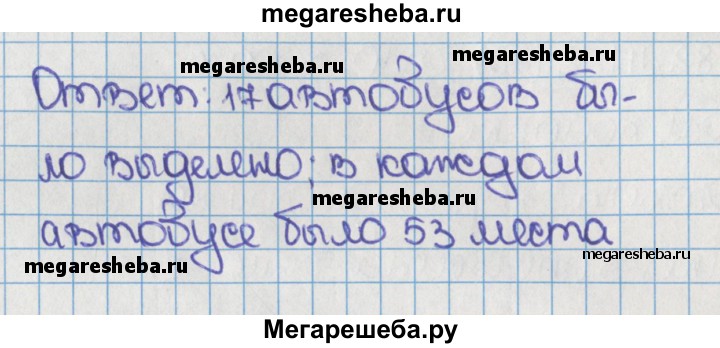 megaresheba.ru
megaresheba.ru
megaresheba.ru
Ответ: 17 автобусов бы-
ло выделено; в каждом
megaresheba.ru
автобусе было 53 места
megaresheba.ru
megaresheba.ru
Мегарешеба.ру